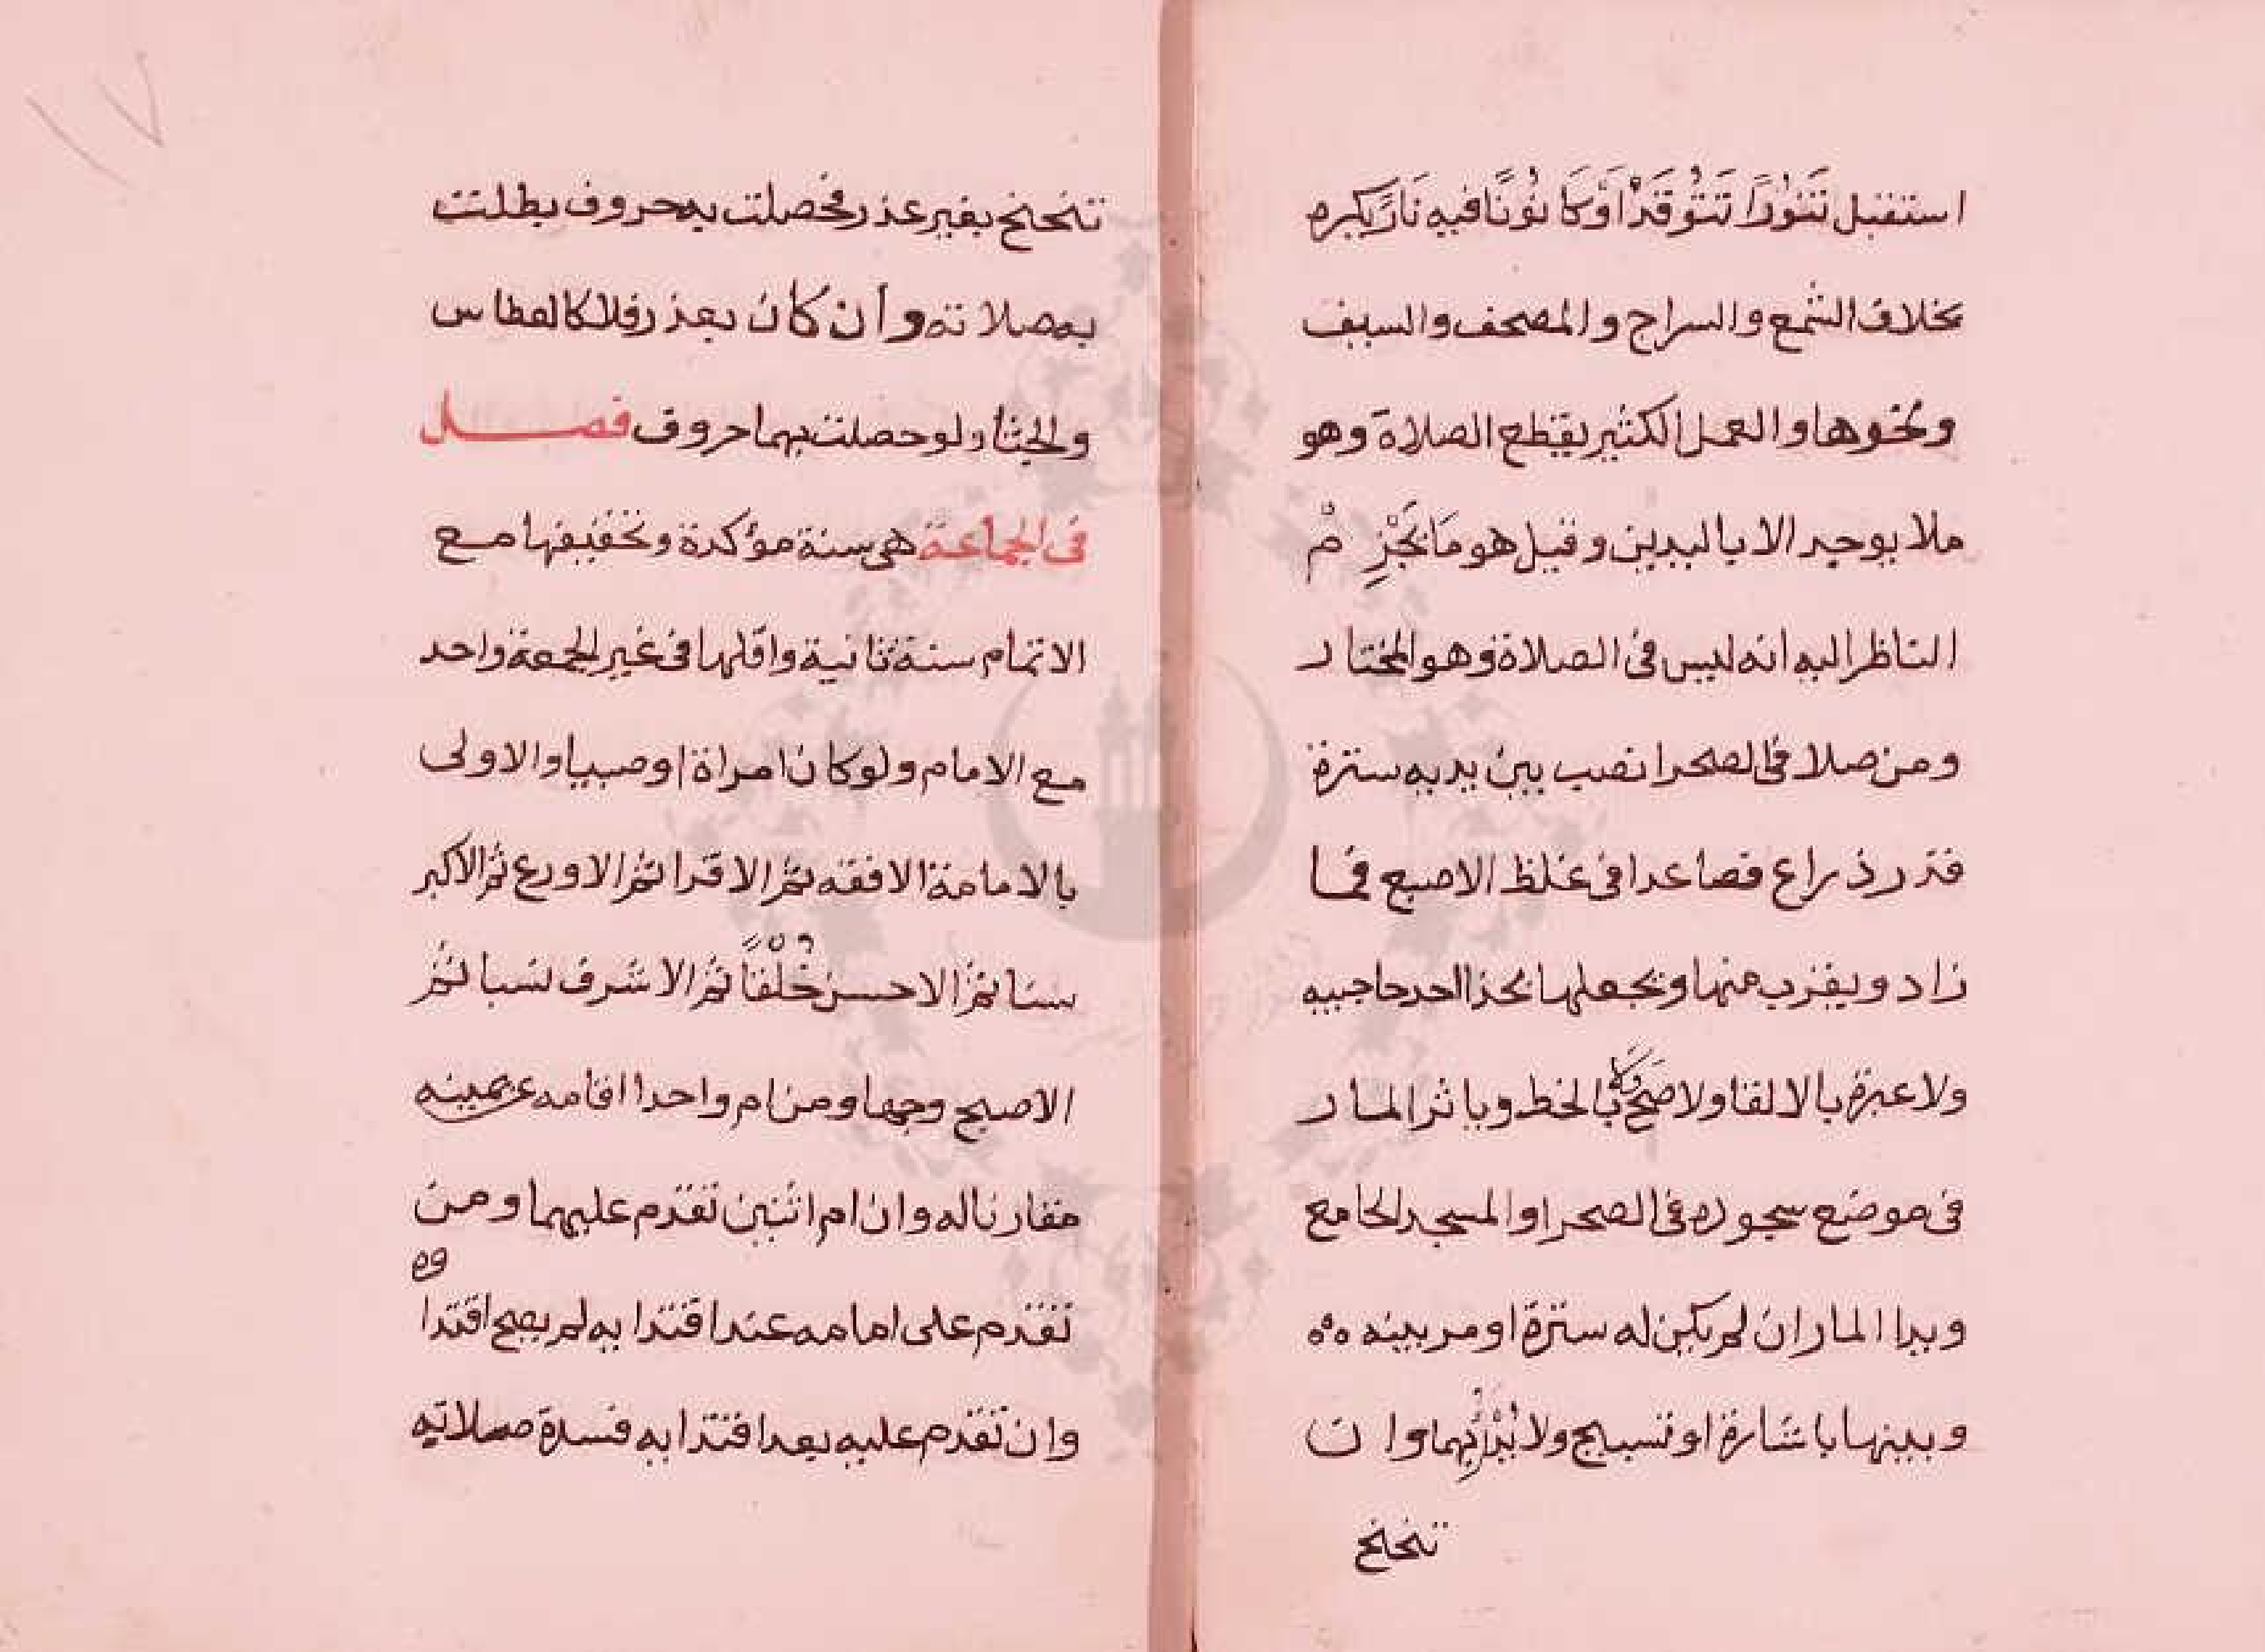 استقبل تَنّورًا تَتَوقَدْ اَوْ كَانُونًا فيه نَارٌ يكره
بخلاف الشمع والسراج والمصحف والسيف
ونحوها والعمل الكثير يقطع الصلاة وهو
ملا يوجد الا باليدين وقيل هو مَا يَجْزِمْ
الناظر اليه انه ليس في الصلاة وهو المختار
ومن صلا في الصحرا نصب بين يديه سترة
قدر ذراع فصاعدا في غلظ الاصبع فما
زاد ويقرب منها ويجعلها بحذا احد حاجبيه
ولا عبرة بالالقا ولا بالخط وياثر المار
في موضع سجوده في الصحرا والمسجد الجامع
ويدا المار ان لم يكن له سترة او مر بينه
وبينها باشارة او تسبيح ولا بهما وان
تنحنح
١٧
تنحنح بغير عذر فحصلت به حروف بطلت
به صلاته وان كان بعذر فلا كالعطاس
والجشا ولو حصلت بهما حروف فصل
في الجماعة هي سنة مؤكدة وتخفيفها مع
الاتمام سنة ثانية واقلها في غير الجمعة واحد
مع الامام ولو كان امراة او صبيا والاولى
بالامامة الافقه ثم الاقرا ثم الاورع ثم الاكبر
سنا ثم الاحسن خُلْقاً ثم الاشرف نسبا ثم
الاصبح وجها ومن ام واحدا اقامه عن يمينه
مقارنا له وان ام اثنين تقدم عليهما ومن
تقدم على امامه عند اقتدا به لم يصح اقتداوه
وان تقدم عليه بعد اقتدا به فسدة صلاته